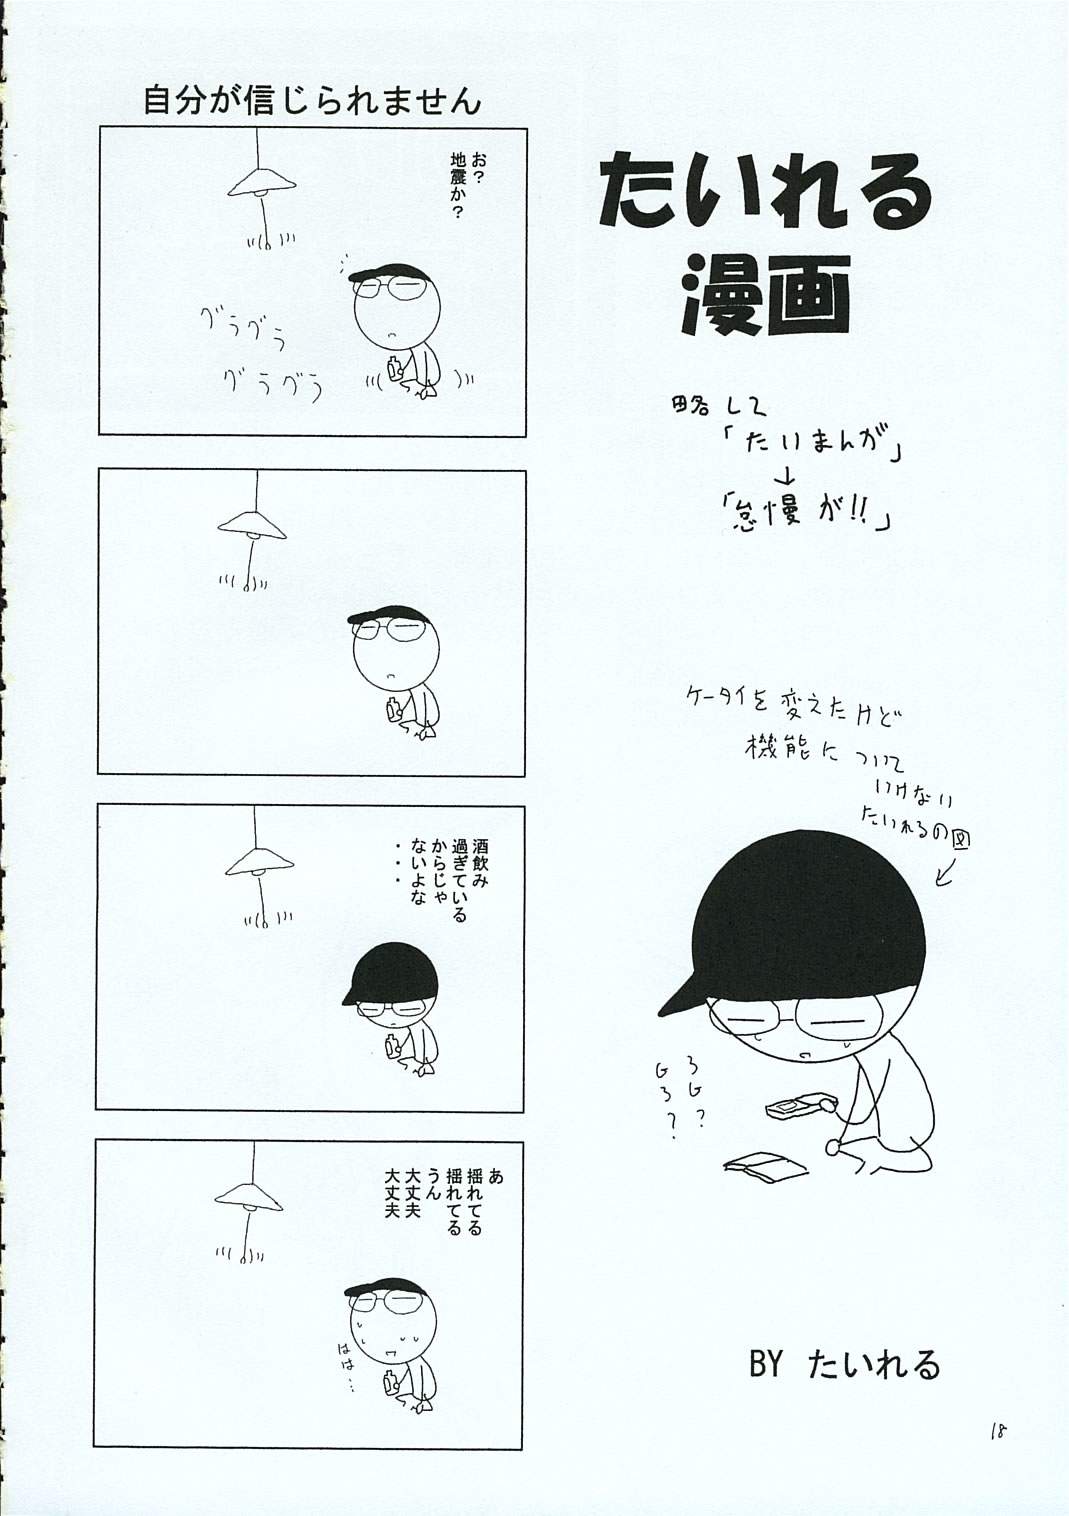 たいれる
漫画
略して
「たいまんが」
↓
「怠慢が!!」
ケータイを変えたけど
機能に ついて
いけない
たいれるの図
3G?
G3?
BY たいれる
自分が信じられません
お?
地震か?
グラグラ
グラグラ
酒飲み
過ぎている
からじゃ
ないよな
・・・
あ
揺れてる
揺れてる
うん
大丈夫
大丈夫
はは…
18